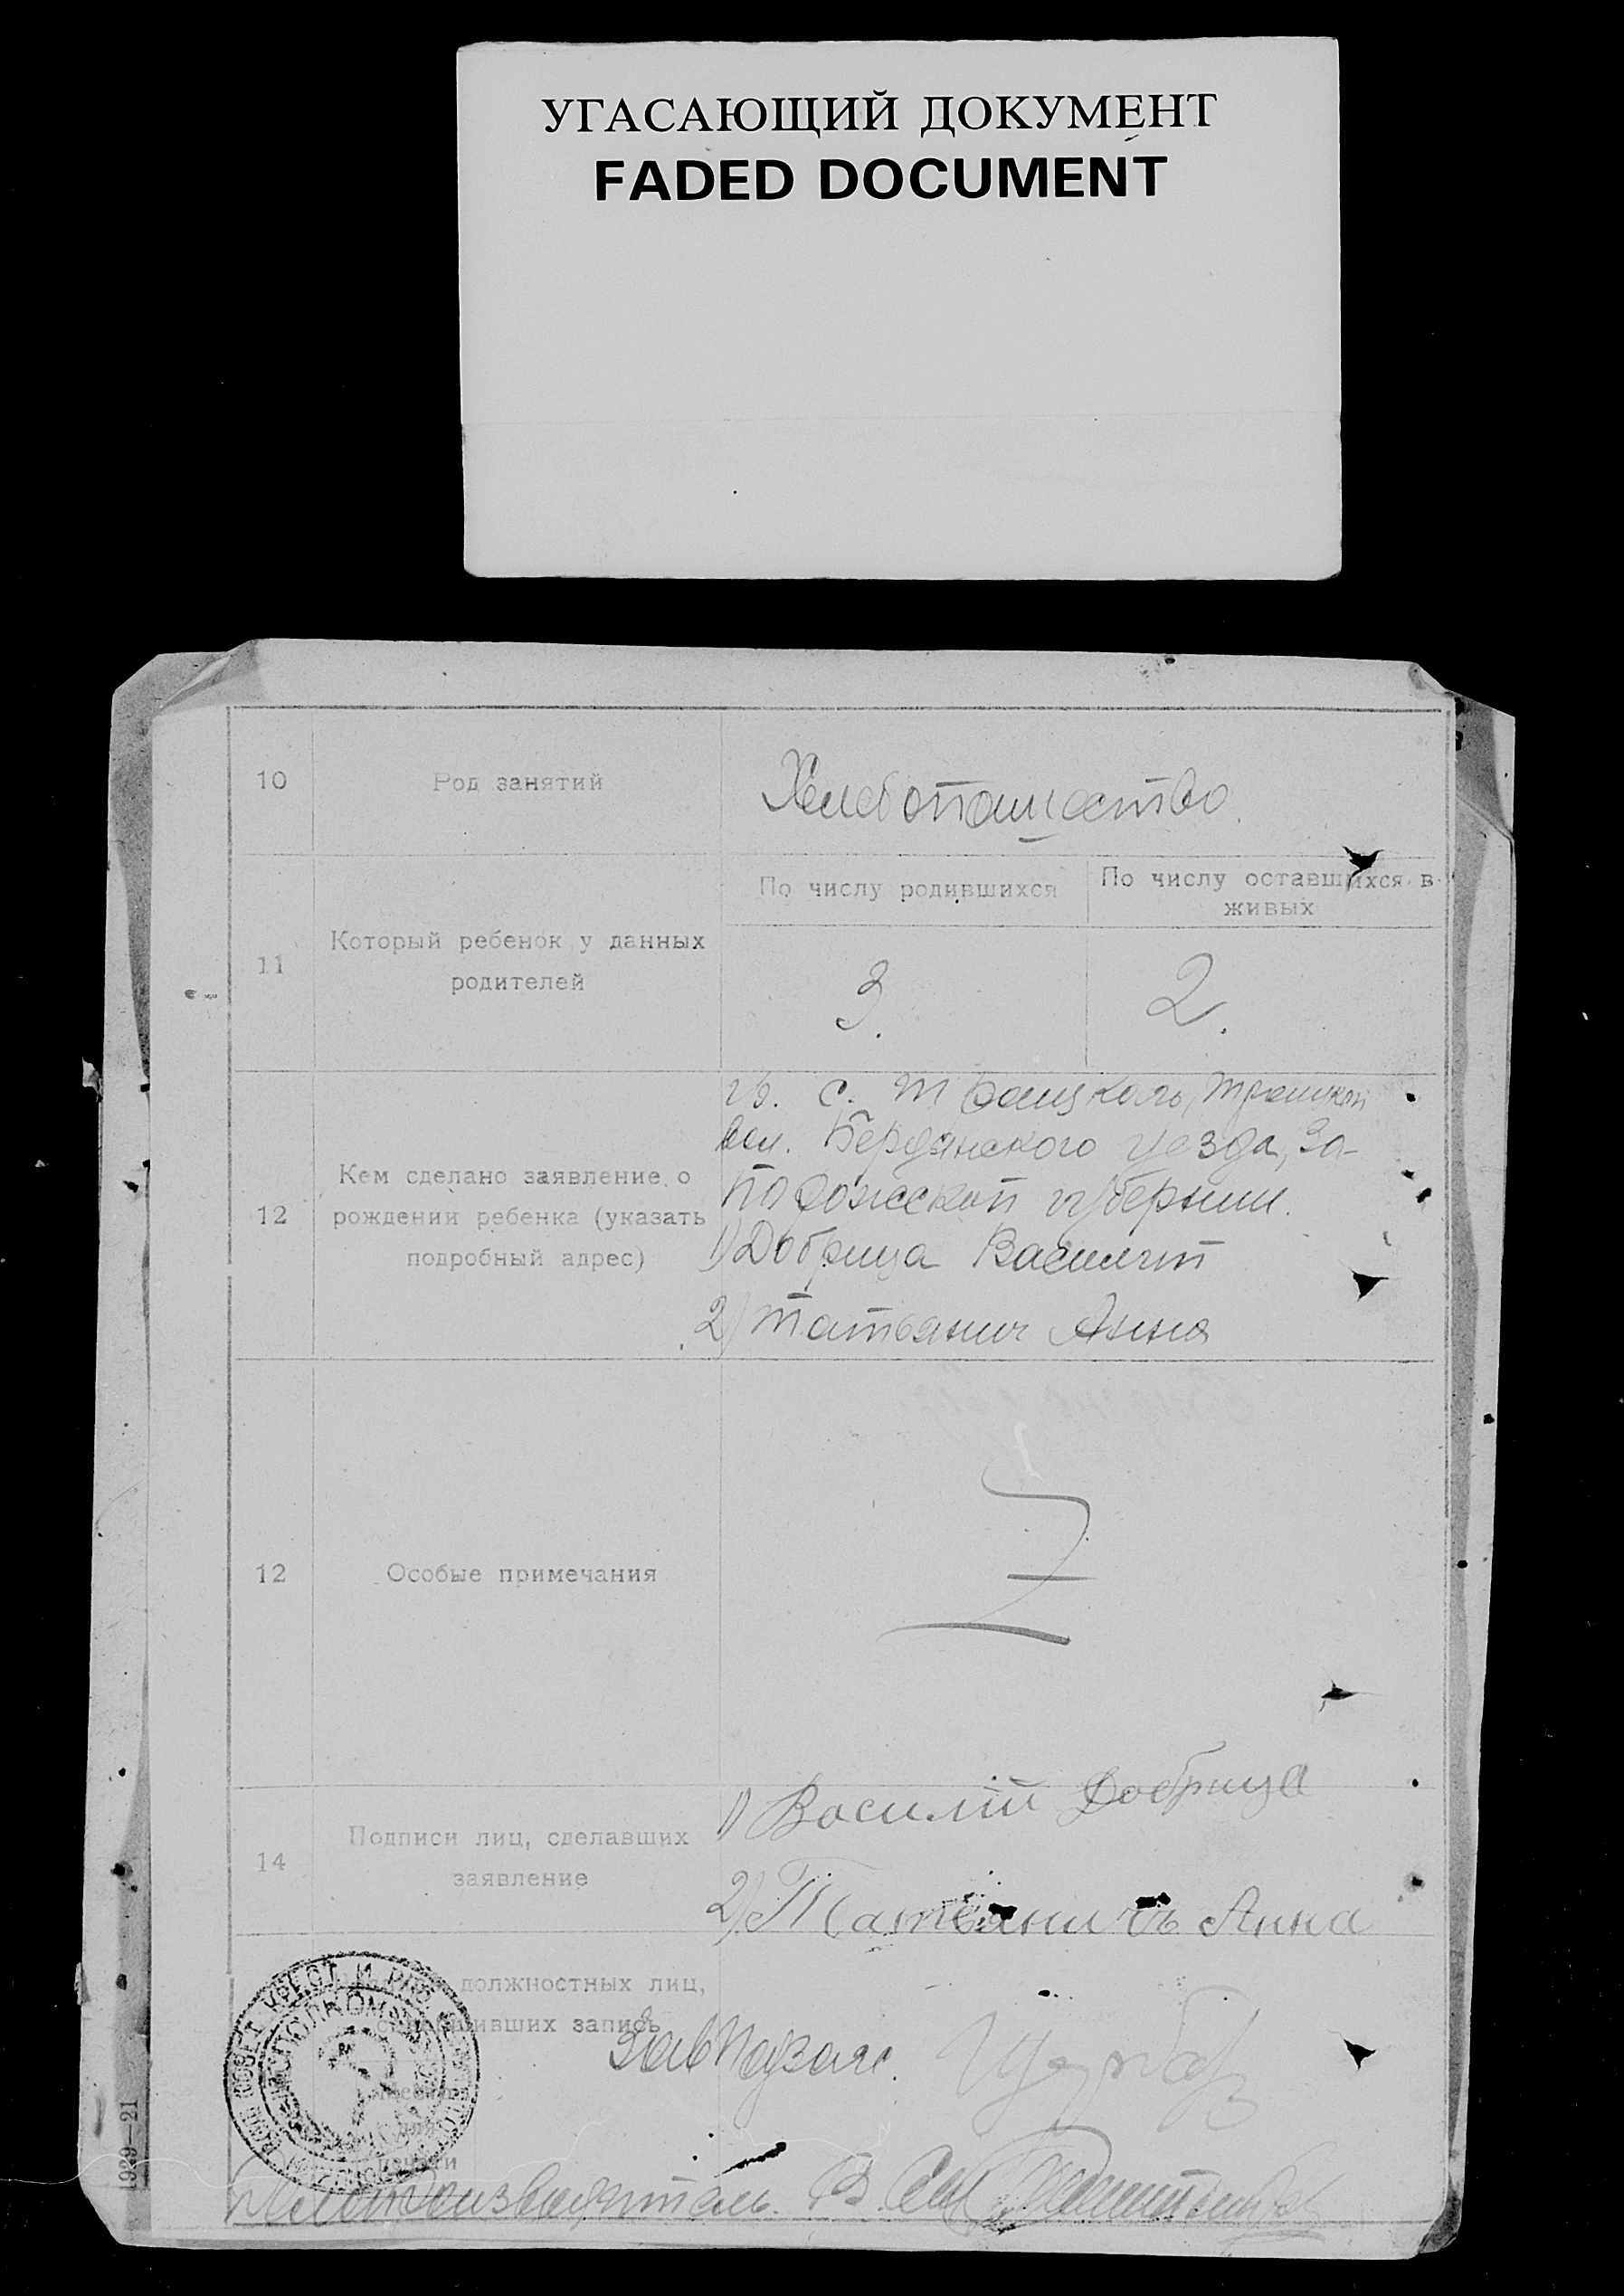 УГАСАЮЩИЙ ДОКУМЕНТ
FADED DOCUMENT
10
Род занятий
Хлебопашество.
11
Который ребенок у данных
родителей
По числу родившихся
По числу оставшихся в
живых
3.
2.
12
Кем сделано заявление о
рождении ребенка (указать
подробный адрес)
с.
вол. Бердянского уезда, За-
порожской губернии.
1) Добрица Василий
2) Татьянич Анна
12
Особые примечания
14
Подписи лиц, сделавших
заявление
1) Василий Добрица
2) Татьяничъ Анна
должностных лиц,
запись
Делопроизводитель. В.
1929—21